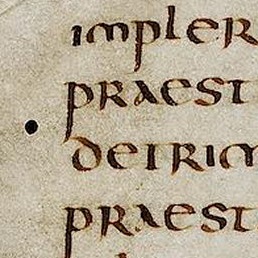 impler
praest
detrim
praest